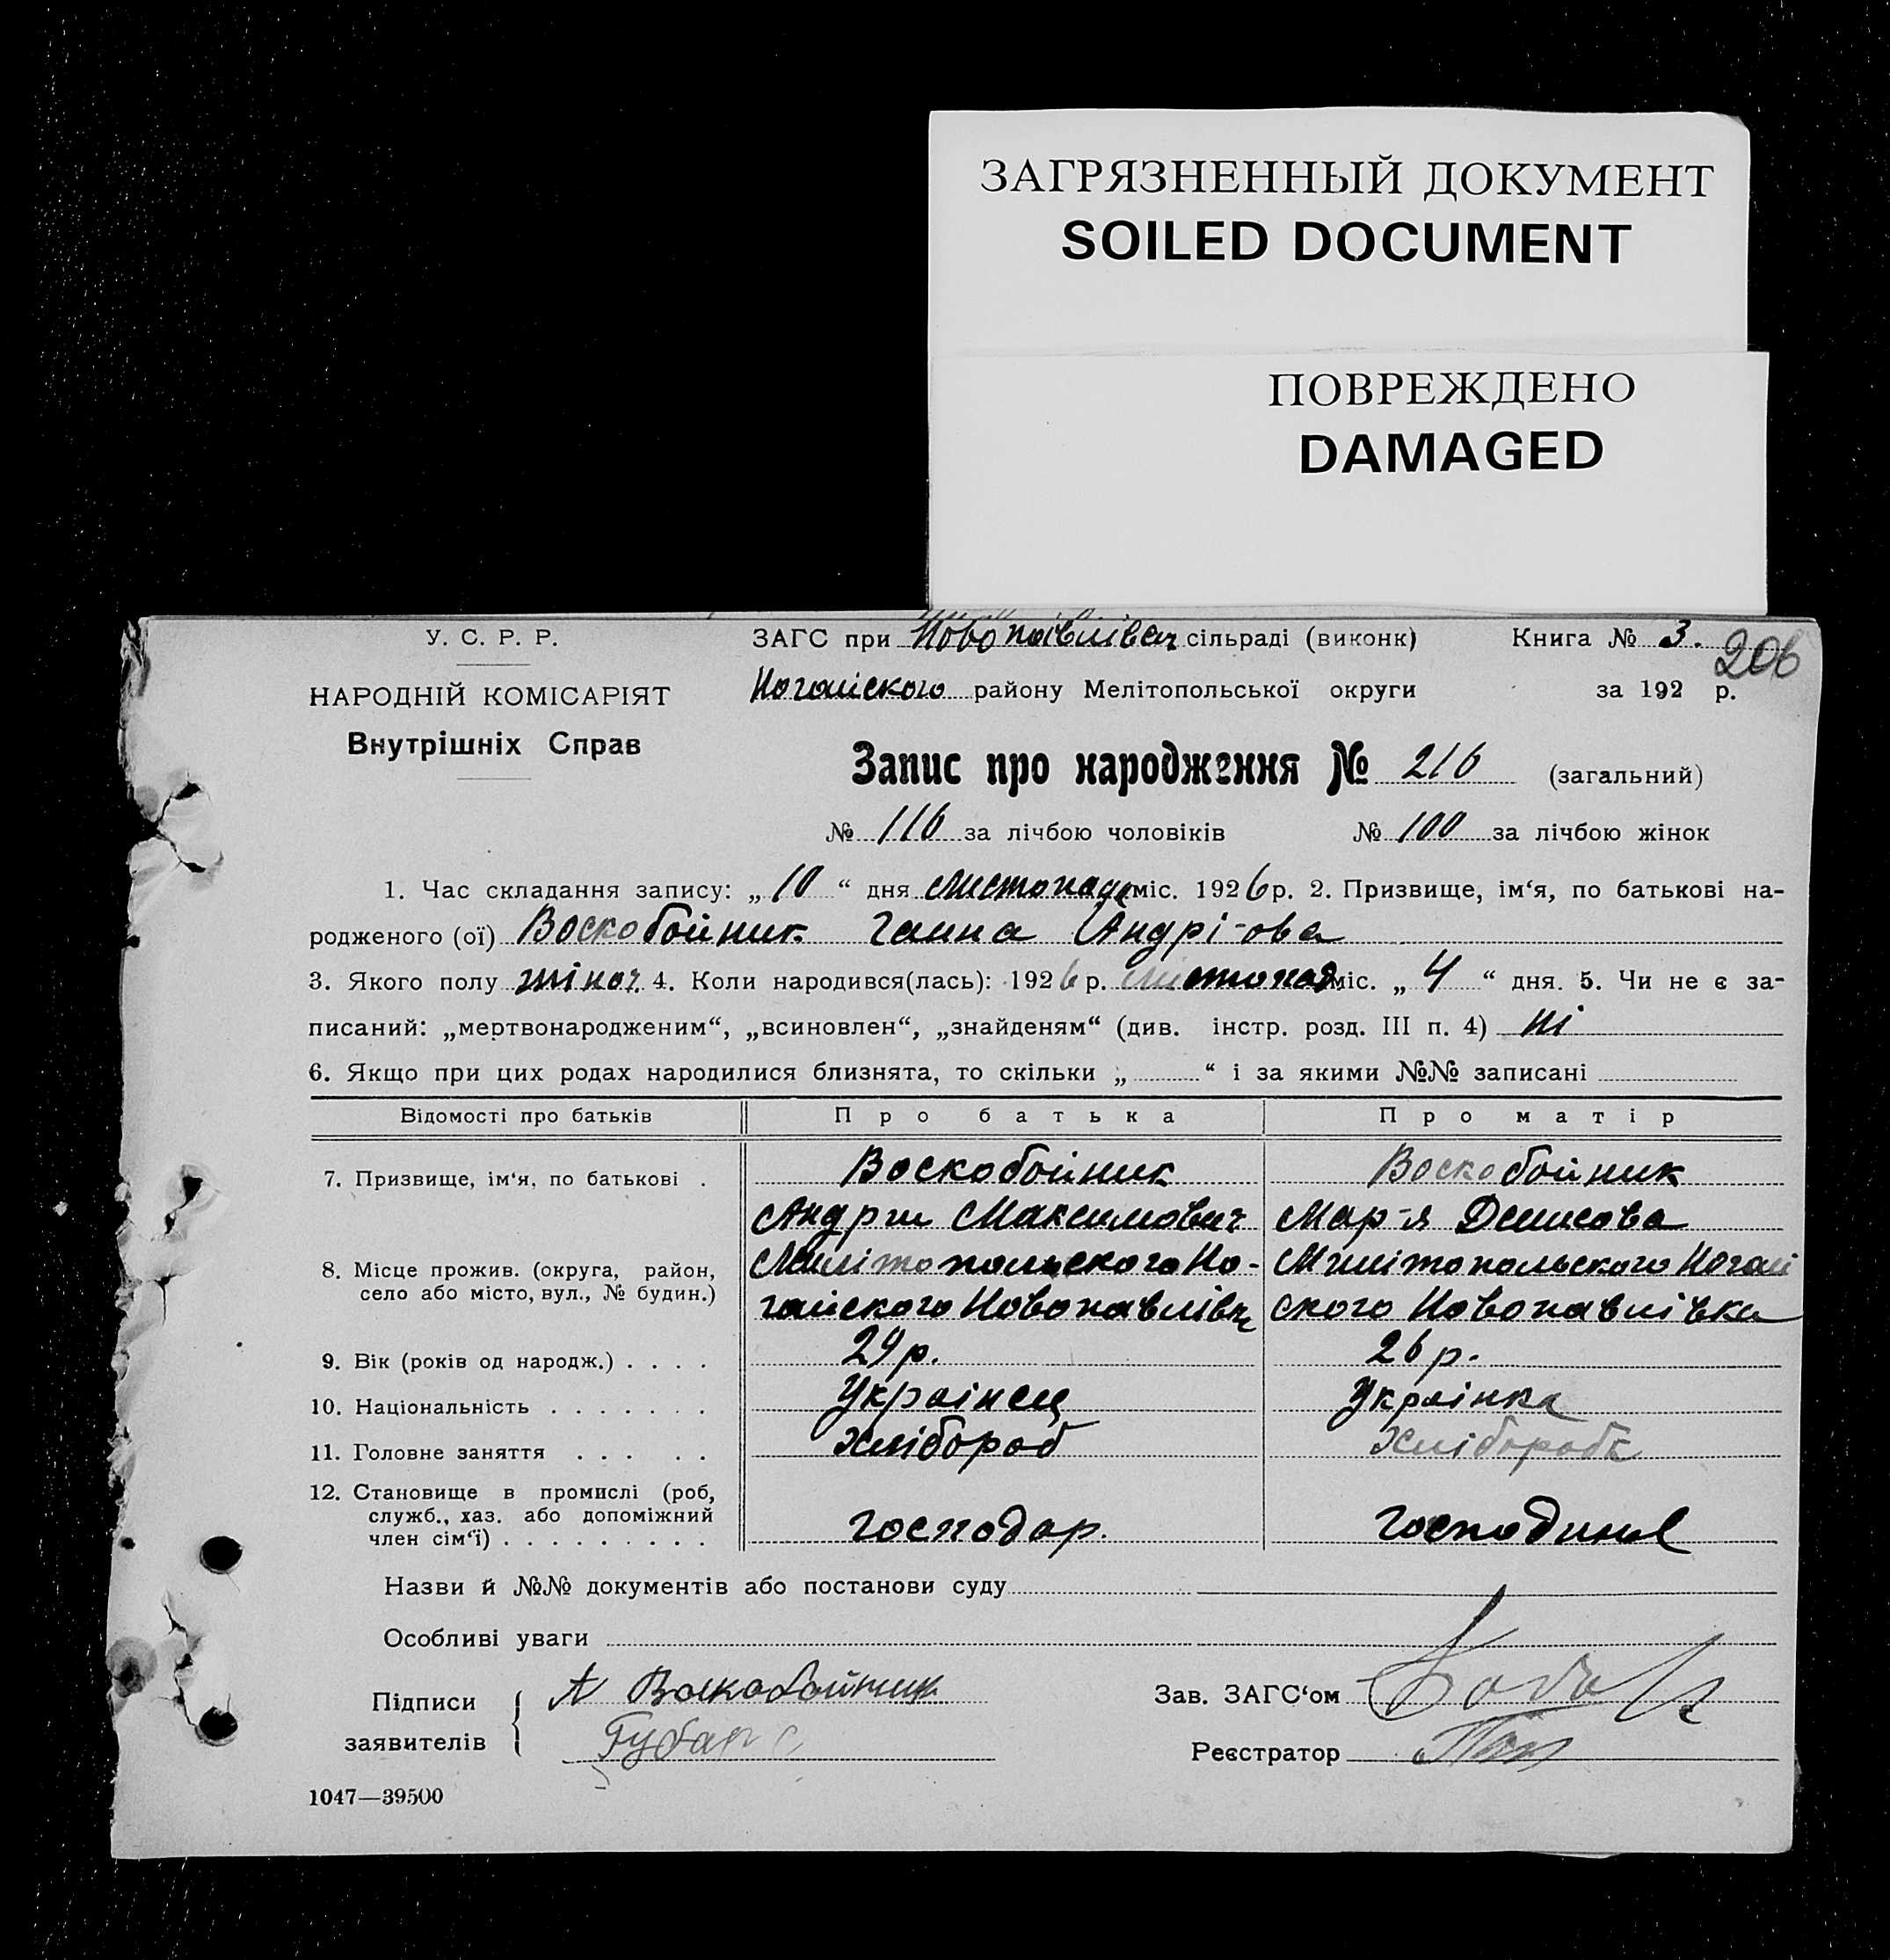 ЗАГРЯЗНЕННЫЙ ДОКУМЕНТ
SOILED DOCUMENT
ПОВРЕЖДЕНО
DAMAGED
У. С. Р. Р.
НАРОДНІЙ КОМІСАРІЯТ
Внутрішніх Справ
ЗАГС при Новопавлівск сільраді (виконк) Книга № 3.
206
Ногайского району Мелітопольської округи за 192 р.
Запис про народження № 216 (загальний)
№ 116 за лічбою чоловіків № 100 за лічбою жінок
1. Час складання запису: „ 10 “ дня листопада міс. 1926 р. 2. Призвище, ім‘я, по батькові на-
родженого (ої) Воскобойник Ганна Андрі-ова
3. Якого полу жіноч. 4. Коли народився(лась): 1926 р. листопад міс. „ 4 “ дня. 5. Чи не є за-
писаний: „мертвонародженим“, „всиновлен“, „знайденям“ (див. інстр. розд. III п. 4) ні
6. Якщо при цих родах народилися близнята, то скільки „ “ і за якими №№ записані
Відомості про батьків Про батька Про матір
7. Призвище, ім‘я, по батькові . Воскобойник Воскобойник
Андрій Максимович Мар-я Денисова
8. Місце прожив. (округа, район, Милітопольского Но- Милітопольского Ногай
село або місто, вул., № будин.) гайского Новопавлівк ского Новопавлівка
9. Вік (років од народж.) . . . . 29 р. 26 р.
10. Національність . . . . . . . Українец Українка
11. Головне заняття . . . . . Хлібороб Хлібороб
12. Становище в промислі (роб,
служб., хаз. або допоміжний господар. господиня
член сім‘ї) . . . . . . . . .
Назви й №№ документів або постанови суду
Особливі уваги
Підписи заявителів { А Воскобойник
Зав. ЗАГС‘ом
Губар
Реєстратор
1047—39500